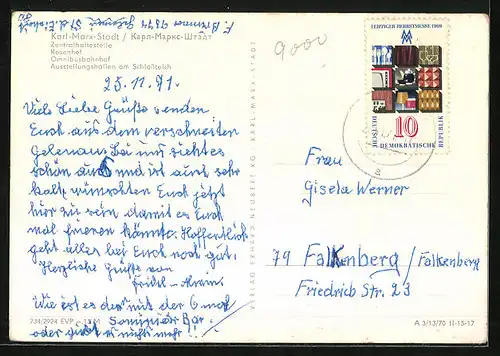 Karl-Marx-Stadt / Карл-Маркс-Штадт
Zentralhaltestelle
Rosenhof
Omnibusbahnhof
Ausstellungshallen am Schloßteich
9000
25.11.71.
Viele Liebe Grüße senden
Euch aus dem verschneiten
Gelenau. Bei uns sieht es
schön aus und ist auch sehr
kalt wünschten Euch jetzt
hier zu sein damit es Euch
mal frieren könnte. Hoffentlich
geht alles bei Euch noch gut.
Herzliche Grüße von
Wie ist es mit der 6
oder nichts mehr!
734/2924 EVP
VERLAG ERHARD NEUBERT KG KARL-MARX-STADT
LEIPZIGER HERBSTMESSE 1969
MM
10
DEUTSCHE
DEMOKRATISCHE
REPUBLIK
Frau
Gisela Werner
79 Falkenberg / Falkenberg
Friedrich Str. 23
A 3/13/70 II-13-17